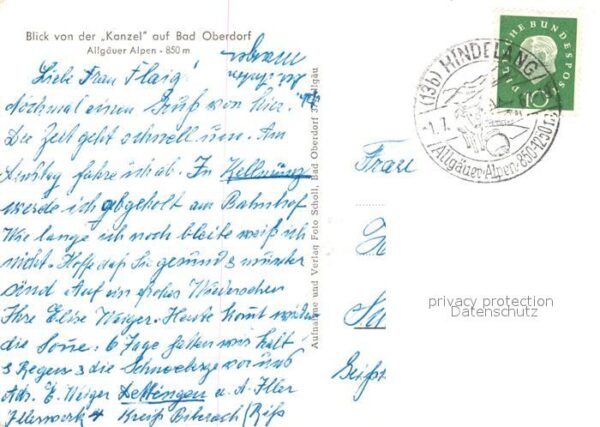 Blick von der „Kanzel" auf Bad Oberdorf
Allgäuer Alpen - 850 m
Liebe Frau Flaig!
Nochmal einen Gruß von hier.
Die Zeit geht schnell um. Am
Dienstag fahre ich ab. In Kellmünz
werde ich abgeholt am Bahnhof
Wie lange ich noch bleibe weiß ich
nicht. Hoffe daß Sie gesund & munter
sind Auf ein frohes Wiedersehen
Ihre Elise Weiger. Heute kommt wieder
die Sonne. 6 Tage hatten wir halt
& Regen & die Schneeberge vor uns
Adr. E. Weiger Dettingen a. d. Iller
Illerwerk 4 Kreiß Biberach/Riß
Aufnahme und Verlag Foto Scholl, Bad Oberdorf Allgäu
(13b) HINDELANG
-1.7.
Allgäuer-Alpen-850-1250
DEUTSCHE BUNDESPOST
10
Frau
privacy protection
Datenschutz